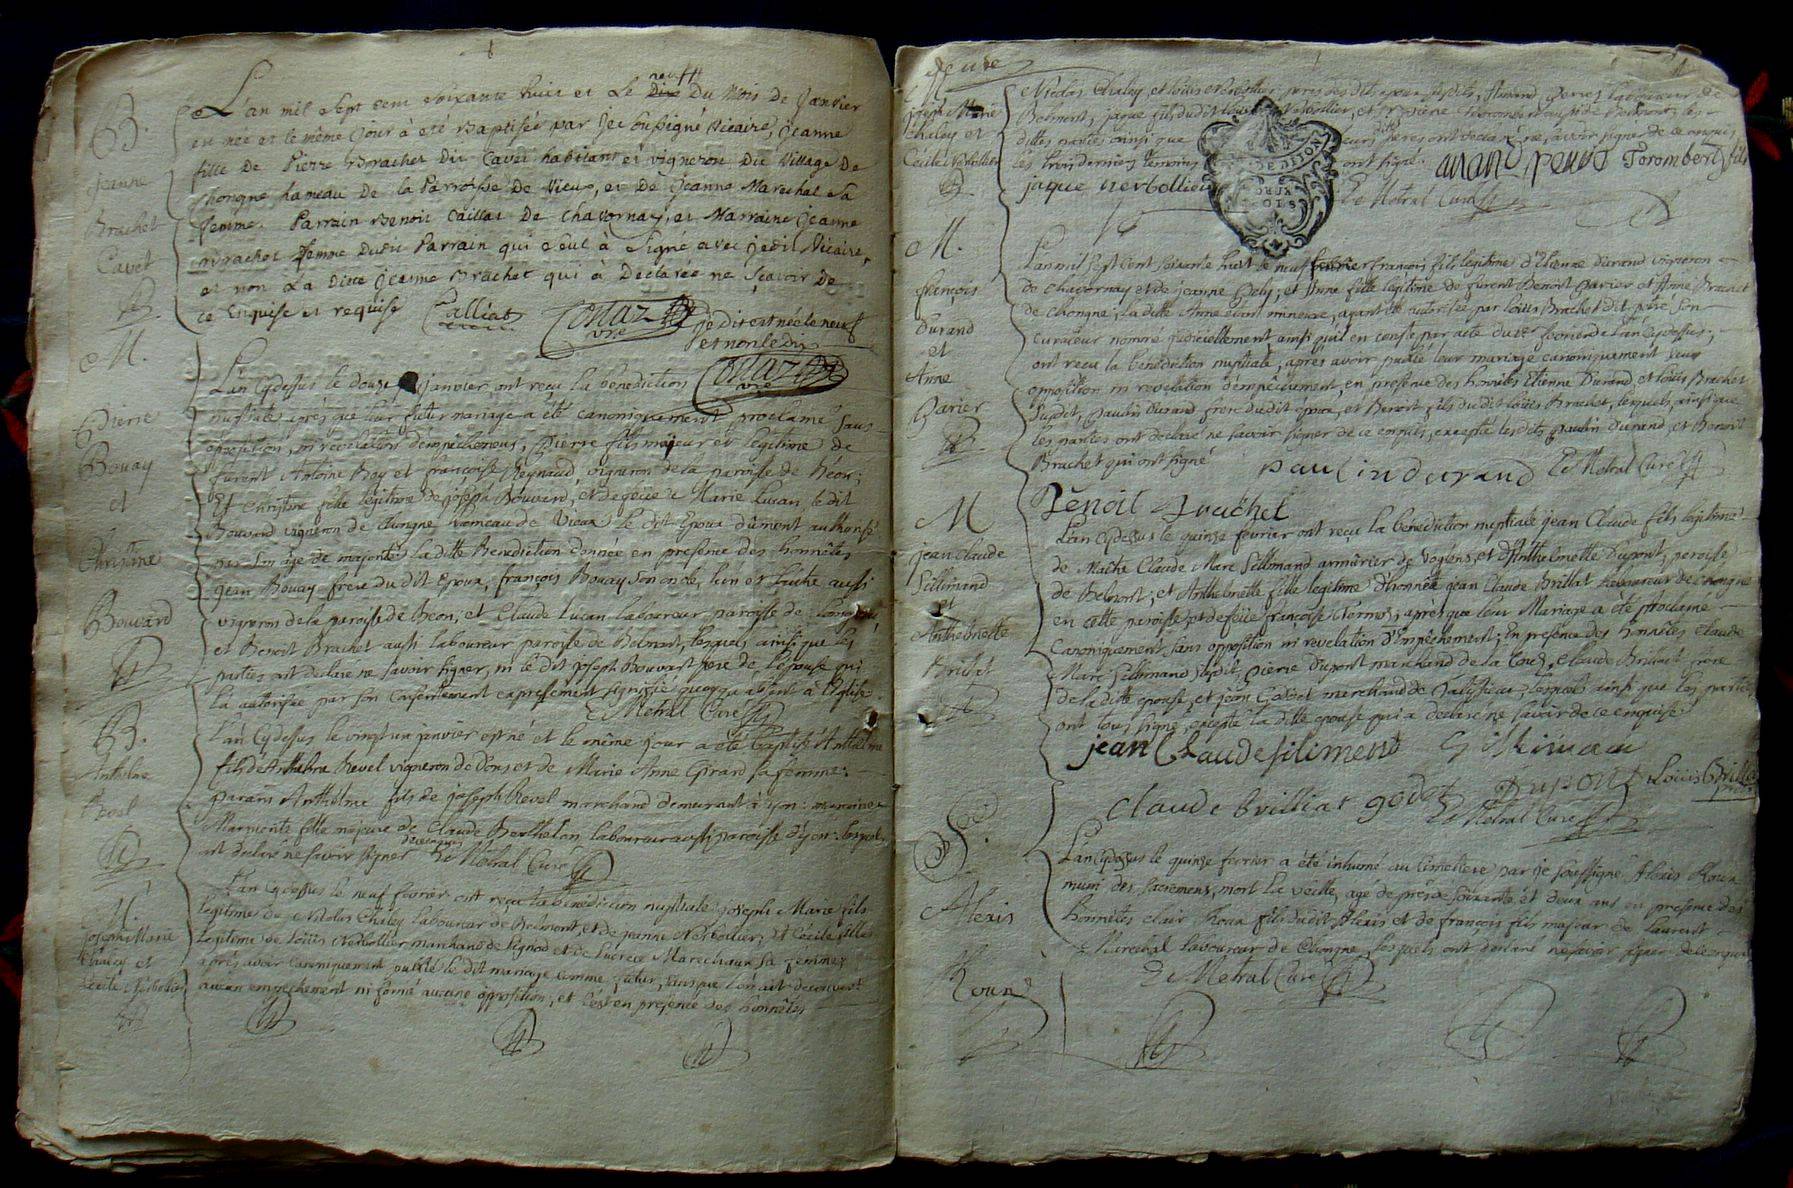 B.
jeanne
Brachet
Cavet
L'an mil sept cent soixante huit et le neuf Du Mois de Janvier
est née et le même jour à eté Baptisée par Je soussigné vicaire, jeanne
fille de Pierre Brachet Dit Cavet habitant et vigneron Du Village De
chongne hameau De la Parroisse De Vieux, et De jeanne Marechal sa
femme. Parrain Benoit Caillat De Chavornay, et Marraine jeanne
Brachet femme Dudit Parrain qui seul à signé avec jedit Vicaire,
et non La Ditte jeanne Brachet qui à Déclarée ne sçavoir De
ce Enquise et requise Calliat Costaz vre je dit est née le neuf
et non le dix
Costaz vre
M.
Pierre
Bouay
et
Christine
Bouvard
L'an cydessus le douze janvier ont reçu la benediction
nuptiale après que leur futur mariage a été canoniquement proclamé sans
opposition, ni revelation d'empêchemens, Pierre fils majeur et legitime de
furent Antoine Boy et françoise Reynaud, vigneron de la paroisse de Béon;
Et Christine fille legitime de joseph Bouvard, et de feüe Marie Lucan le dit
Bouvard vigneron de Chongne hameau de Vieux le dit Epoux dûment authorisé
par son âge de majorité la ditte Benediction donnée en presence des honnêtes
jean Bouay frere du dit Epoux, françois Bouay son oncle, l'un et l'autre aussi
vigneron de la paroisse de Beon, et Claude Lucan laboureur paroisse de
et Benoit Brachet aussi laboureur paroisse de Belmont, lesquels ainsi que les
parties ont declaré ne savoir signer, ni le dit joseph Bouvard pere de l'epouse qui
l'a autorisée par son consentement expressement signifié quoyqu'absent à l'Eglise.
Le Metral Curé
B.
Anthelme
Revel
L'an cydessus le vingt un janvier est né et le même jour a été baptisé Anthelme
fils d'Anthelme Revel vigneron de Dons et de Marie Anne Girard sa femme:
parain Anthelme fils de joseph Revel marchand demeurant à Lyon: maraine
Marmonte fille majeure de Claude Berthelon laboureur aussi paroisse d'ijon: lesquels
ont declaré ne savoir signer de ce enquis Le Metral Curé
M.
joseph Marie
Chaley et
Cecile Nerbollier
L'an cydessus le neuf fevrier ont reçu la bénédiction nuptiale joseph Marie fils
legitime de Nicolas Chaley laboureur de Belmont, et de jeanne Nerbollier; et Cécile fille
legitime de Loüis Nerbollier marchand de Lignod et de Lucrece Marechaux sa femme;
après avoir canoniquement publié le dit mariage comme futur, sans que l'on ait decouvert
aucun empechement ni formé aucune opposition, et c'est en presence des honnêtes
joseph Marie
Chaley et
Cécile Nerbollier
Nicolas Chaley et Loüis Nerbollier peres des dits epoux susdits,
Belmont, jaque fils du dit Loüis Nerbollier, et
dittes parties ainsi que
les trois derniers temoins ont signé.
jaque nerbollier Le Metral Curé
M.
françois
Durand
et
Anne
Parier
L'an mil sept cent soixante huit le neuf fevrier françois fils legitime d'Etienne Durand vigneron
de Chavornay et de jeanne Bely; et Anne fille legitime de furent Benoit Parier et Anne Brachet
de Chongne; la ditte Anne étant mineure, ayant été autorisée par Loüis Brachet dit pere son
curateur nommé judiciellement ainsi qu'il en conste par acte du fevrier de l'an cydessus;
ont reçu la bénédiction nuptiale, après avoir publié leur mariage canoniquement sans
opposition ni revelation d'empêchement, en presence des honnêtes Etienne Durand, et Loüis Brachet
susdit, paulin Durand frere du dit époux, et Benoit fils du dit Loüis Brachet, lesquels ainsi que
les parties ont declaré ne savoir signer de ce enquis, excepté les dits paulin Durand, et Benoit
Brachet qui ont signé paulin durand Le Metral Curé
Benoit Brachet
M
jean Claude
Sillimand
et
Anthelmette
Brillat
L'an cydessus le quinze fevrier ont reçu la bénédiction nuptiale jean Claude fils legitime
de Maître Claude Marc Sillimand armûrier de Vogens, et d'Anthelmette Dupont, paroisse
de Belmont; et Anthelmette fille legitime d'honnête jean Claude Brillat laboureur de Chongne
en cette paroisse et de feüe françoise; après que leur Mariage a été proclamé
canoniquement sans opposition ni revelation d'Empêchement; en presence des honnêtes Claude
Marc Sillimand susdit, pierre Dupont marchand de la, Claude Brillat frere
de la ditte epouse, et jean Godet marchand de; lesquels ainsi que les parties
ont tous signé, excepté la ditte epouse qui a declaré ne savoir de ce enquise
jean Claude silimand
Claude brilliat godet Dupont Loüis Brillat
Le Metral Curé
S.
Alexis
Roux
L'an cydessus le quinze fevrier a été inhumé au cimetiere par je soussigné Alexis Roux
muni des sacremens, mort la veille, agé de près de soixante et deux ans en presence des
honnêtes clair Roux fils du dit Alexis et de françois fils majeur de Laurent
Marechal laboureur de Chongne, lesquels ont declaré ne savoir signer de ce enquis
Le Metral Curé